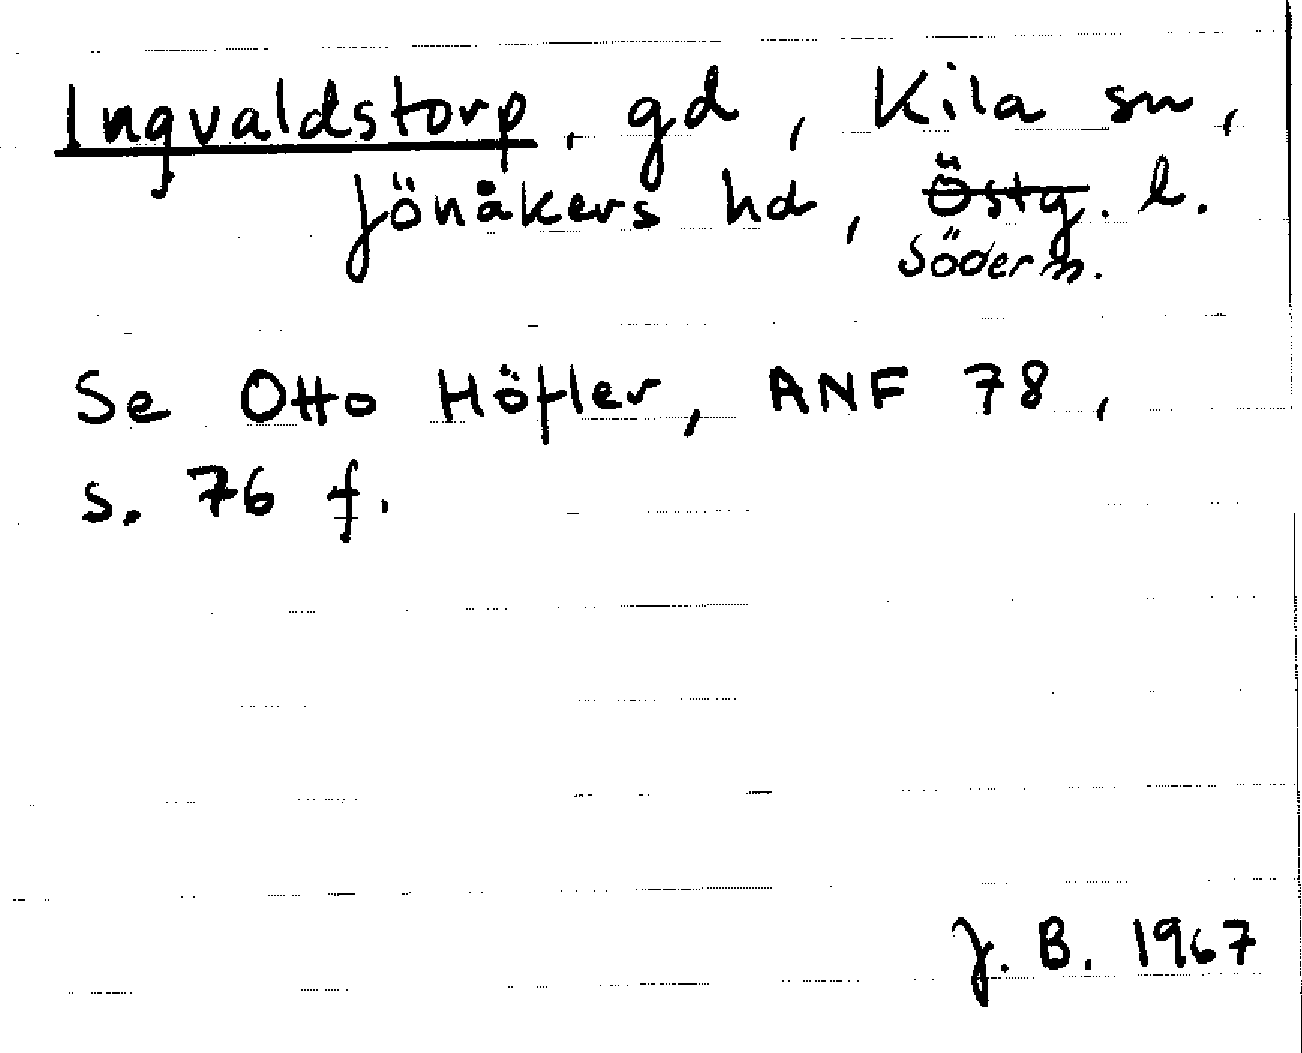 Ingvaldstorp, gd, Kila sn,
Jönåkers hd, Östg. l.
Söderm.
Se Otto Höfler, ANF 78,
s. 76 f.
J. B. 1967